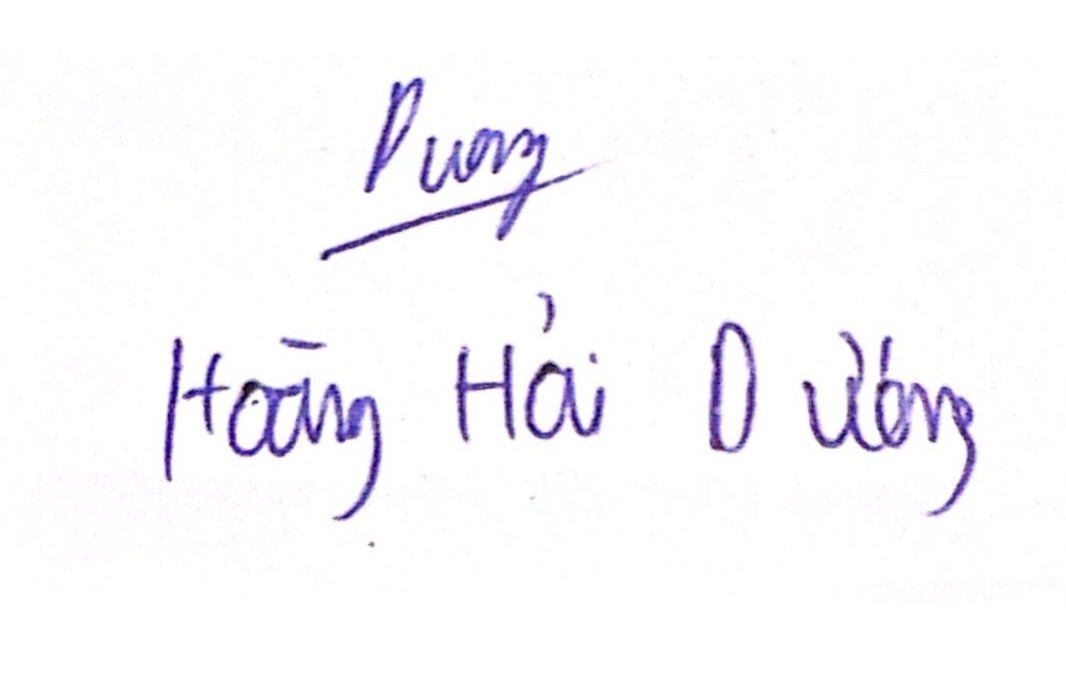 Dương
Hoàng Hải Dương